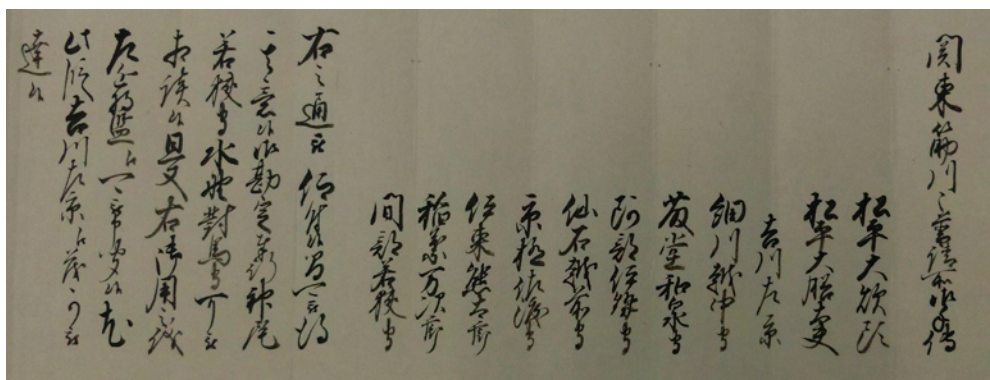 関東筋川々普請御手伝
松平大炊頭
松平大膳大夫
吉川左京
細川越中守
藤堂和泉守
阿部伊勢守
仙石越前守
京極佐渡守
伊東熊太郎
稲葉万次郎
間部若狭守
右之通被 仰付候間可被得
其意候御勘定奉行神尾
若狭守水野對馬守可被
相談候且又右御用之儀
左近将監江可 候尤
此段吉川左京江茂可被
達候